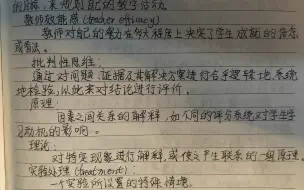 的目标，来规划自己的教学活动
教师效能感(teacher efficacy)
教师对自己的能力在何种程度上决定了学生成就的信念
或看法。
批判性思维：
通过对问题、证据及其解决方案进行合乎逻辑地、系统
地检验，以此来对结论进行评价。
原理：
因素之间关系的解释，如不同的评分系统对学生学
习动机的影响。
理论：
对特定现象进行解释，或使之产生联系的一组原理。
实验处理(treatment)：
一个实验所设置的特殊情境。